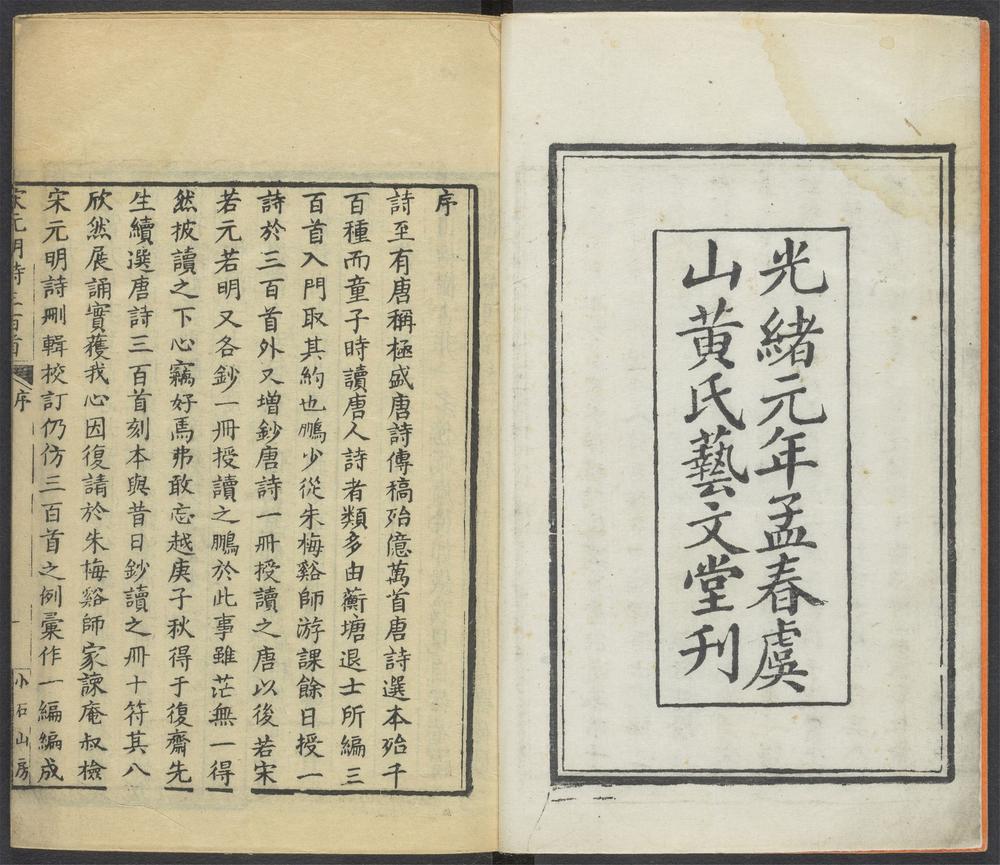 光緒元年孟春虞
山黄氏藝文堂刋
序
詩至有唐稱極盛唐詩傳稿殆億萬首唐詩選本殆千
百種而童子時讀唐人詩者類多由蘅塘退士所編三
百首入門取其約也鵬少從朱梅谿師游課餘日授一
詩於三百首外又增鈔唐詩一冊授讀之唐以後若宋
若元若明又各鈔一冊授讀之鵬於此事雖茫無一得
然披讀之下心竊好焉弗敢忘越庚子秋得于復齋先
生續選唐詩三百首刻本與昔日鈔讀之冊十符其八
欣然展誦實獲我心因復請於朱梅谿師家諫庵叔檢
宋元明詩刪輯校訂仍仿三百首之例彙作一編編成
宋元明詩三百首 序 一 小石山房